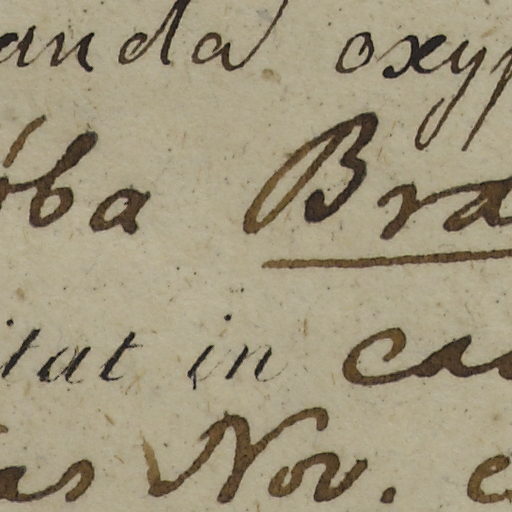 anda oxyp
oba Bra
itat in ca
as Nov. e